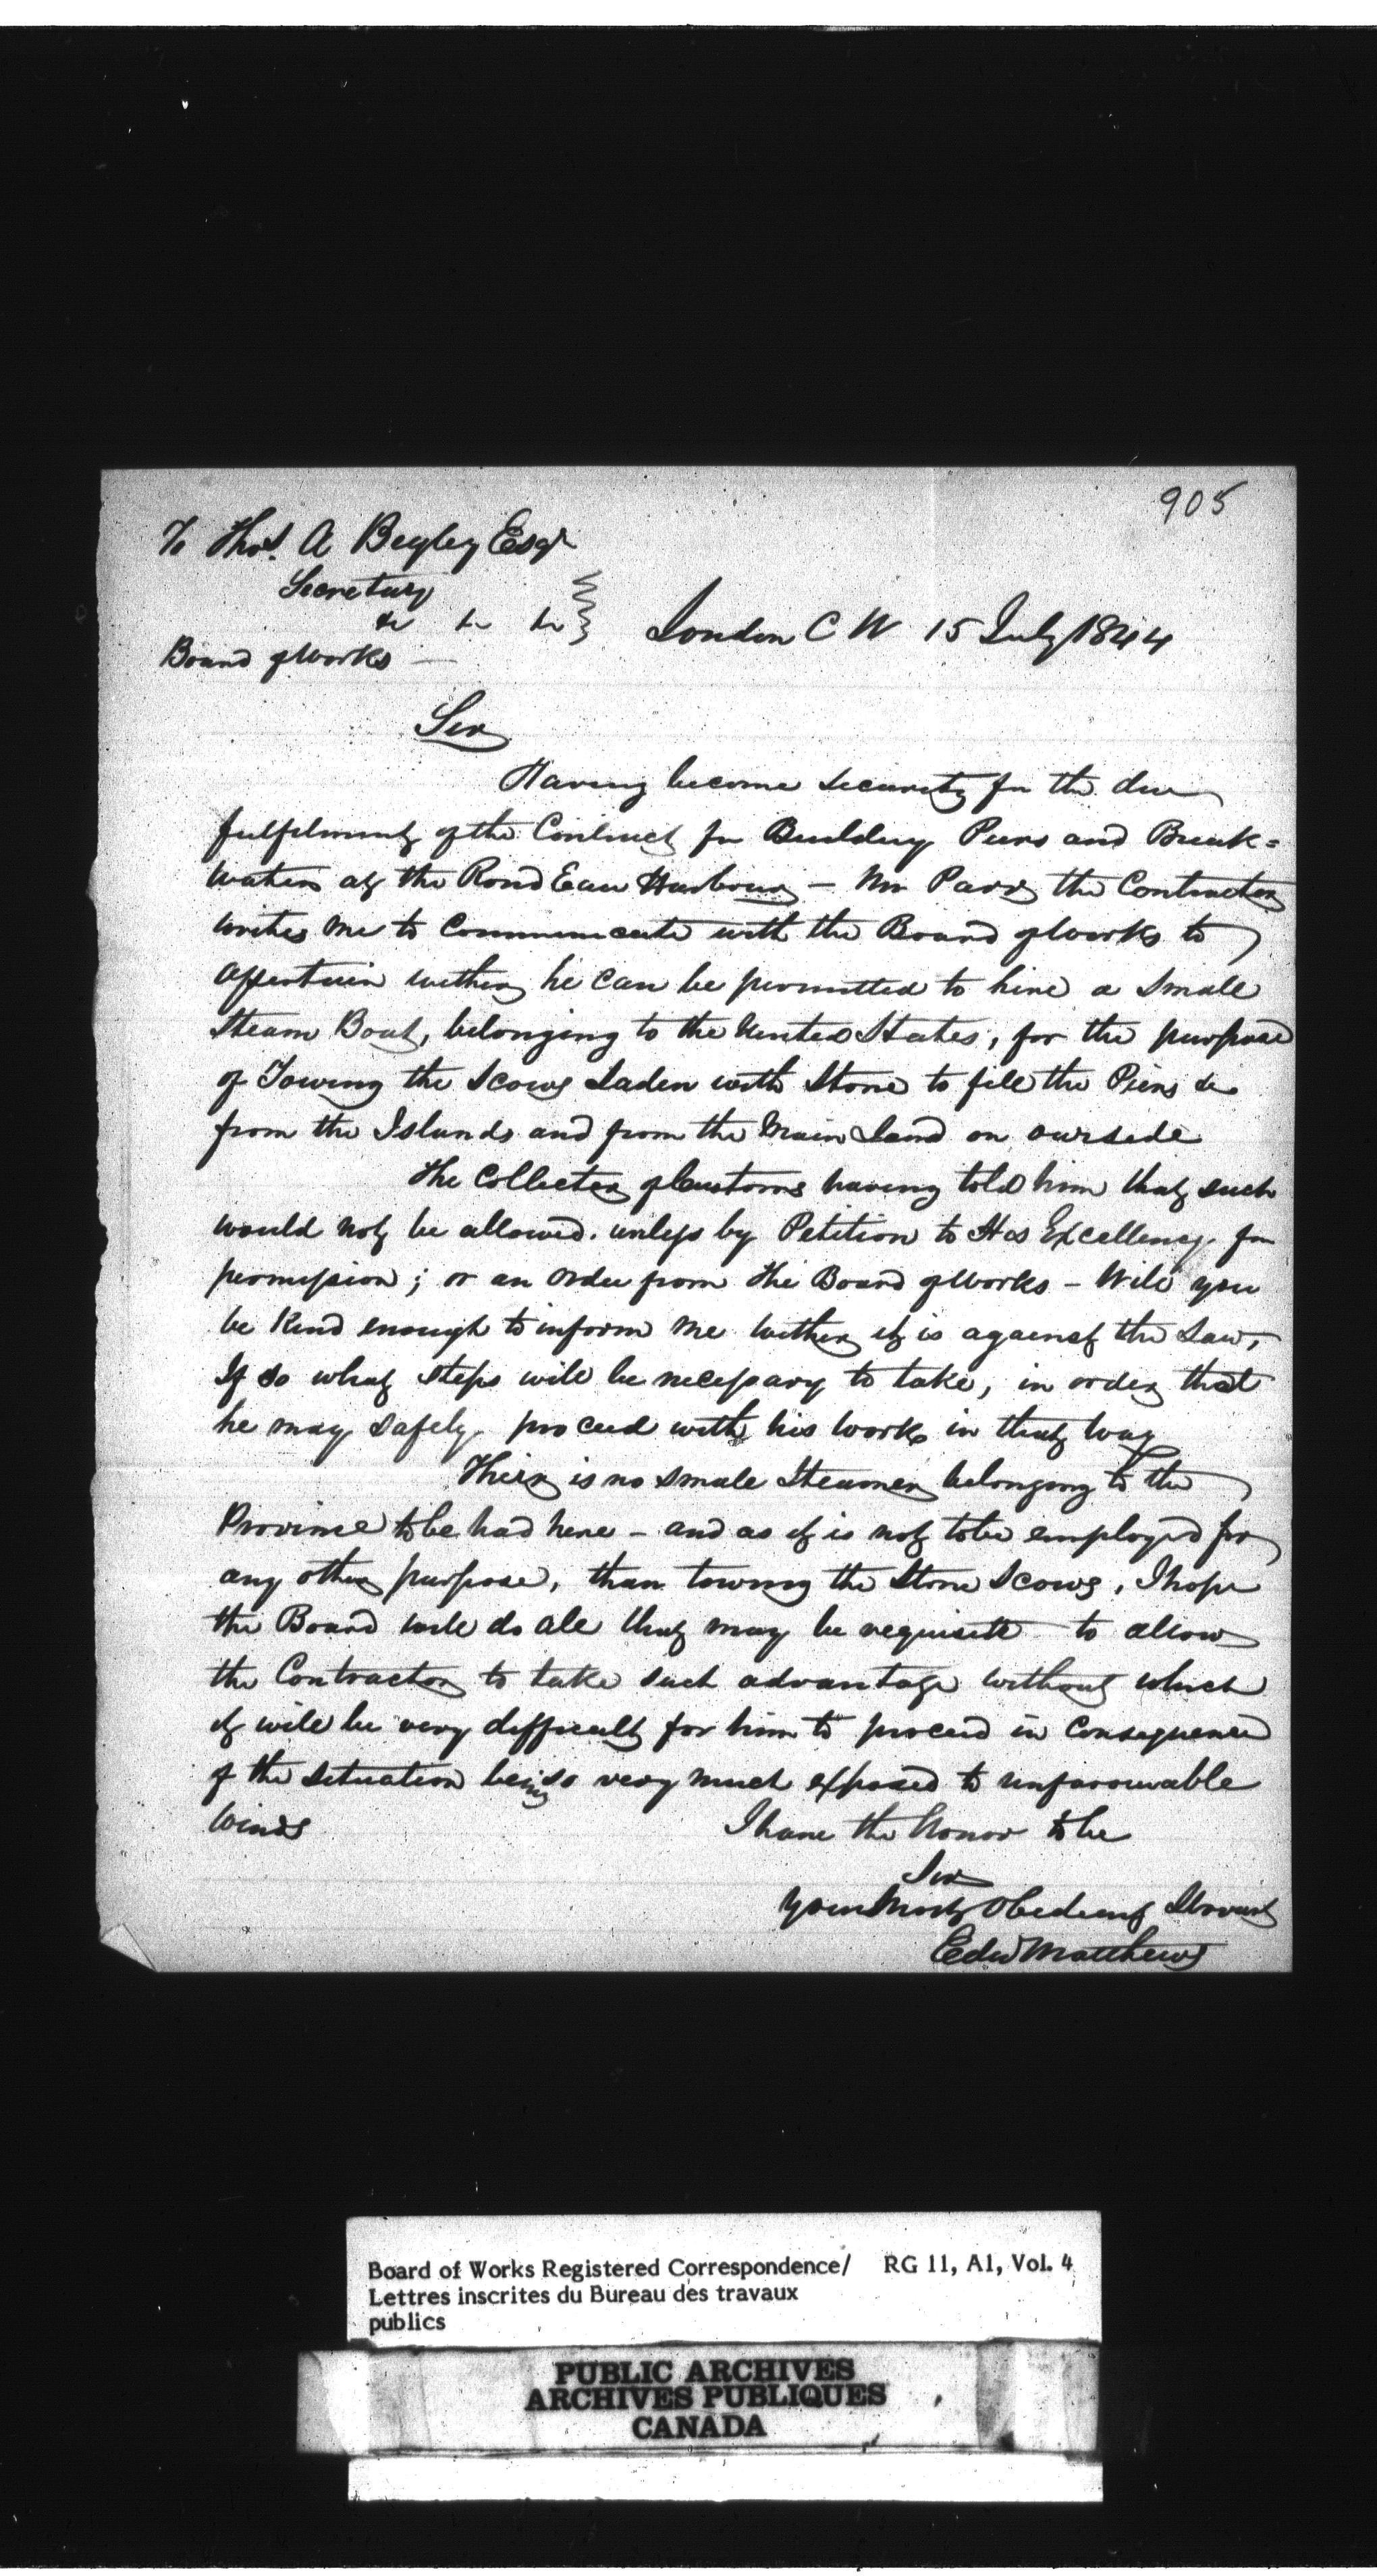 905
To Thos. A Begley Esqr
Secretary
&c &c &c
London C W 15 July 1844
Board of Works —
Sir
Having become security for the due
fulfilment of the Contract for Building Piers and Break=
waters at the Rond Eau Harbour — Mr Parry the Contractor
writes me to Communicate with the Board of Works to
assertain wether he can be permitted to hire a small
Steam Boat, belonging to the United States, for the purpose
of Towing the Scows Laden with Stone to fill the Piers &c
from the Islands and from the Main Land on our side
The Collector of Customs having told him that such
would not be allowed. unless by Petition to His Excellency for
permission; or an order from the Board of Works — Will you
be Kind enough to inform me wether it is against the Law,
If so what steps will be necessary to take, in order that
he may safely proceed with his works in that way
Their is no small Steamer belonging to the
Province to be had here — and as it is not to be employed for
any other purpose, than towing the Stone Scows, I hope
the Board will do all that may be requisite to allow
the Contractor to take such advantage without which
it will be very difficult for him to proceed in Consequence
of the situation being so very much exposed to unfavourable
winds
I have the honor to be
Sir
Your Most Obedient Servant
Edw Matthews
Board of Works Registered Correspondence/ RG 11, A1, Vol. 4
Lettres inscrites du Bureau des travaux
publics
PUBLIC ARCHIVES
ARCHIVES PUBLIQUES
CANADA